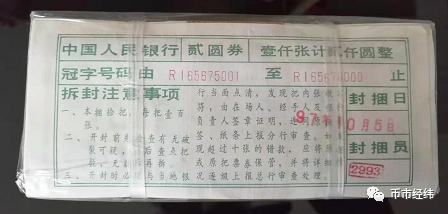 中国人民银行 贰圆券 壹仟张计贰仟圆整
冠字号码由 RI65675001 至 RI6567 000 止
拆封注意事项
一、本捆拾把，每把壹百张。
二、开封前先检查有无破裂可疑，后查点把数，无误后再拆。
三、开封时必
行当面点清，发现把内张
，由在场人、经手人及
负责人签章证明，连
签，纸条上报分行审查，如
现超过十张的错款，应将
或原把票券保管，并将详细
况逐级上报总行审查处理。
封捆日
97年10月5日
封捆员
2993
币市经纬